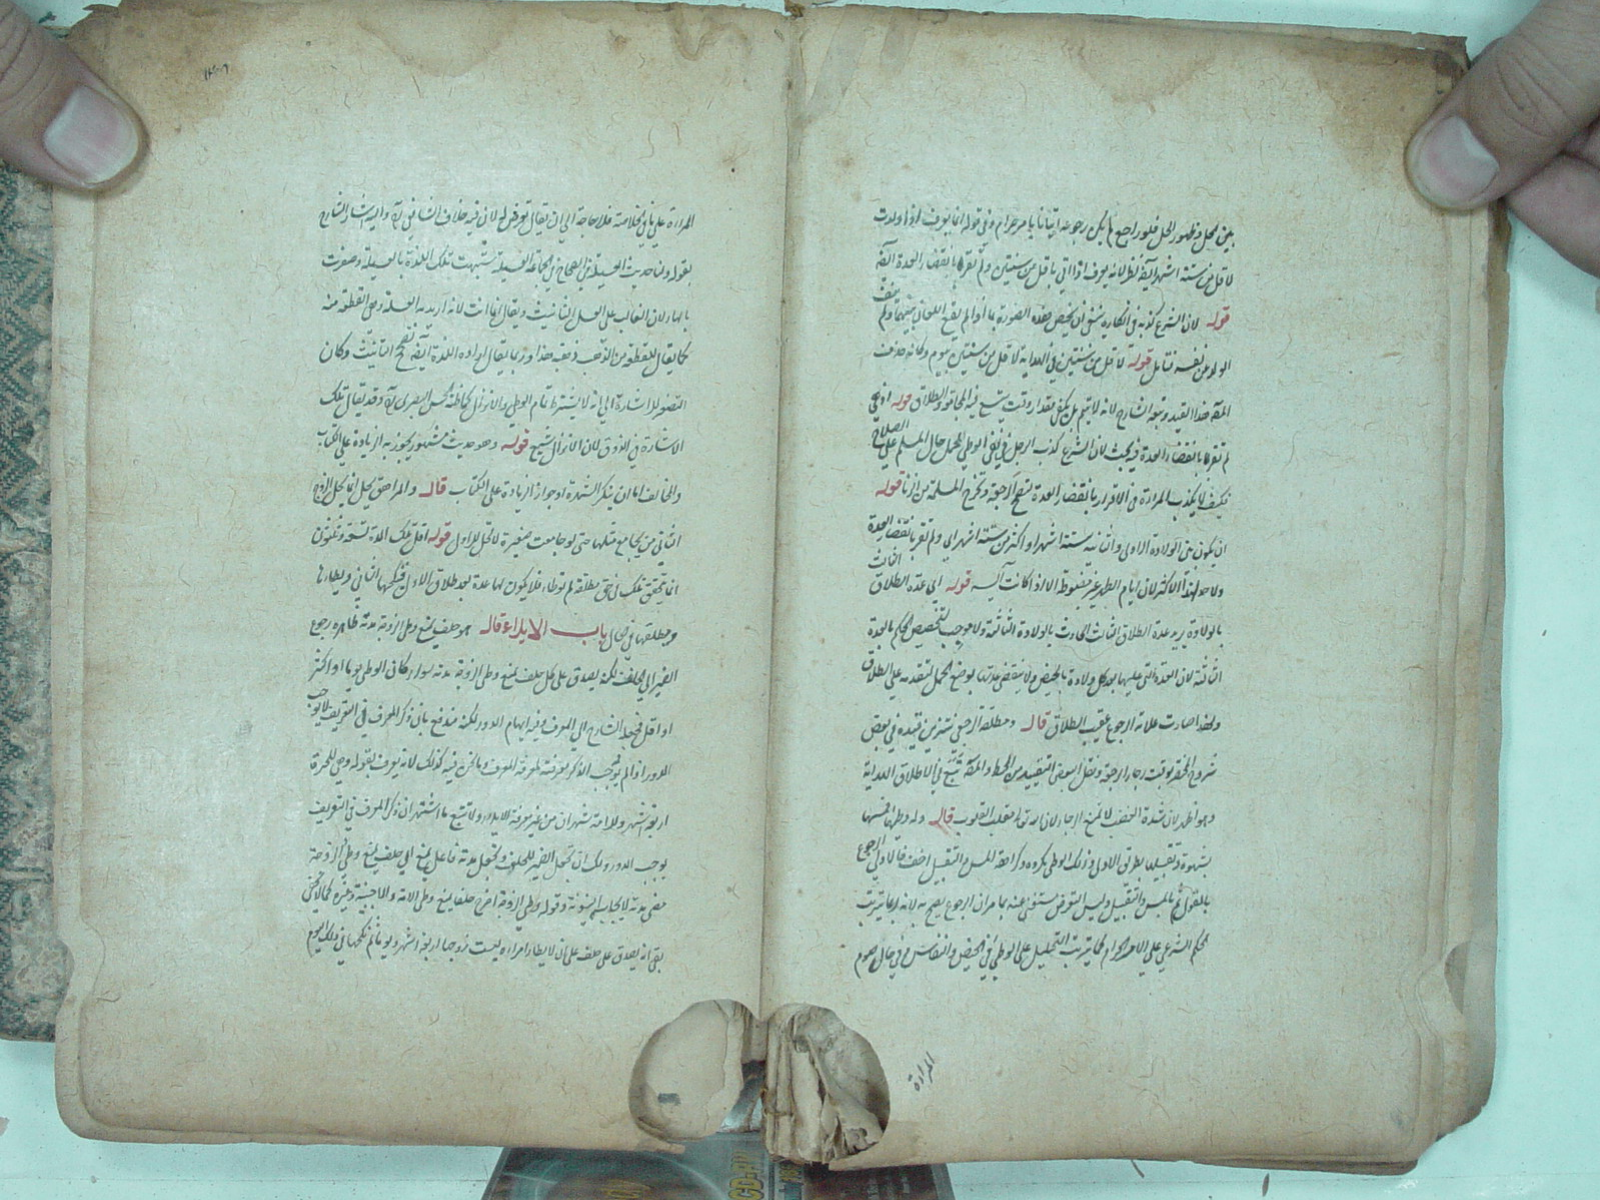 بين الحل وظهور الحل فلو راجع لم يكن رجوعه اتيانا بامر حرام وفي قوله انما يعرف اذا ولدت
لاقل من ستة اشهر ايضا نظر لانه يعرف اذا اتى باقل من سنتين ولم تقر بانقضاء العدة ايضا
قوله لان الشرع كذبه في انكاره ينبغي ان يخص هذه الصورة بما اذا لم يقع اللعان بينهما ولم
الولد عن نفسه فتأمل قوله لاقل من سنتين في الهداية لاقل من سنتين بيوم وكانه حذف
المص هذا القيد وتبعه الشارح لانه لا يتم بل يكفي مقدار وقت يسع فيه المجامعة والطلاق قوله اذ هي
لم تقر بانقضاء العدة فيه بحث لان الشرع كذب الرجل في نفي الوطي لحمل حال المسلم على الصلاح
فكيف لا يكذب المرأة في الاقرار بانقضاء العدة لتصح الرجعة وتخرج المسلمة من الزنا قوله
ان يكون بين الولادة الاولى والثانية ستة اشهر او اكثر من ستة اشهر اي ولم تقر بانقضاء العدة
ولا حد لهذا الاكثر لان ايام الطهر غير مضبوطة الا اذا كانت آيسه قوله اي عدة الطلاق الثالث
بالولادة يريد عدة الطلاق الثالث الحادث بالولادة الثالثة ولا موجب لتخصيص الحكم بالعدة
الثالثة لان العدة التي عليها بعد كل ولادة بالحيض ولا ينقضي عدتها بوضع الحمل لتقدمه على الطلاق
ولهذا صارت علامة الرجوع عقيب الطلاق قال ومطلقة الرجعي تتزين تقييده في بعض
شروح المختصر بوقت رجاء الرجعة ونقل بعض التقييد من المحيط والمص تبع في الاطلاق الهداية
وهو اظهر لان شدة الغضب لا تمنع الرجاء لان الله تعالى مقلب القلوب قال وله وطيها ولمسها
بشهوة وتقبيلها بطريق الاولى وذلك الوطي يكره وكراهة اللمس والتقبيل اخف فالاولى الرجوع
بالقول ثم باللمس والتقبيل وليس التعرض مستغنى عنه بما مر ان الرجوع يصح به لانه ربما يترتب
الحكم الشرعي على الامر الحرام كما يترتب التحليل على الوطي في الحيض والنفاس وفي حال صوم
المرأة
المرأة على ما في الخلاصة فلا حاجة الى ان يقال تعرض له لان فيه خلاف الشافعي رح واليه اشار الشارح
بقوله ولنا حديث العسيلة في الصحاح في الجماعة العسيلة شبهت تلك اللذة بالعسيلة وصغرت
بالهاء لان الغالب على العسل التانيث ويقال انما انث لانه اريد به العسلة وهي القطعة منه
كما يقال للقطعة من الذهب ذهبة هذا وربما يقال اراد به اللذة ايضا تصح التانيث وكان
التصغير للاشارة الى انه لا يشترط تمام الوطي والانزال كما ظنه الحسن البصري رح وقد يقال تلك
الاشارة في الذوق لان الانزال شبع قوله وهو حديث مشهور يجوز به الزيادة على الكتاب
والمخالف اما ان ينكر الشهرة او جواز الزيادة على الكتاب قال والمراهق يحلل انما يحل الزوج
الثاني من يجامع مثلها حتى لو جامعت صغيرة لا تحل للاول قوله اقل تلك المدة تسعة وثلثون
انما يتحقق تلك في حق مطلقة لم توطا فلا يكون لها عدة بعد طلاق الاول فنكحها الثاني ويطاءها
ويطلقها في الحال باب الايلاء قال هو حلف يمنع وطي الزوجة مدته ظاهره رجوع
الضمير الى الحلف لكنه يصدق على كل حلف يمنع وطي الزوجة مدته سواء كان الوطي يوما او اكثر
او اقل فجعله الشارح الى المعرف وفيه ايهام الدور لكنه مندفع بان ذكر المعرف في التعريف لا يوجب
الدور اذا لم يوجب الذكر معرفته بمعرفة المعرف وما نحن فيه كذلك لانه يعرف بقوله وهي للحرة
اربعة اشهر وللامة شهران من غير معرفة الايلاء ولا تتبع ما اشتهر ان ذكر المعرف في التعريف
يوجب الدور ولك ان تجعل الضمير للحلف وتجعل مدته فاعل يمنع اي حلف يمنع وطي الزوجة
مضي مدته لايجابه البينونة وقوله وطي الزوجة اخرج حلفا يمنع وطي الامة والاجنبية وغيره كما لا يخفى
بقي انه يصدق على حلف على ان لا يطا امراة ليست زوجها اربعة اشهر ويوما ثم نكحها في ذلك اليوم